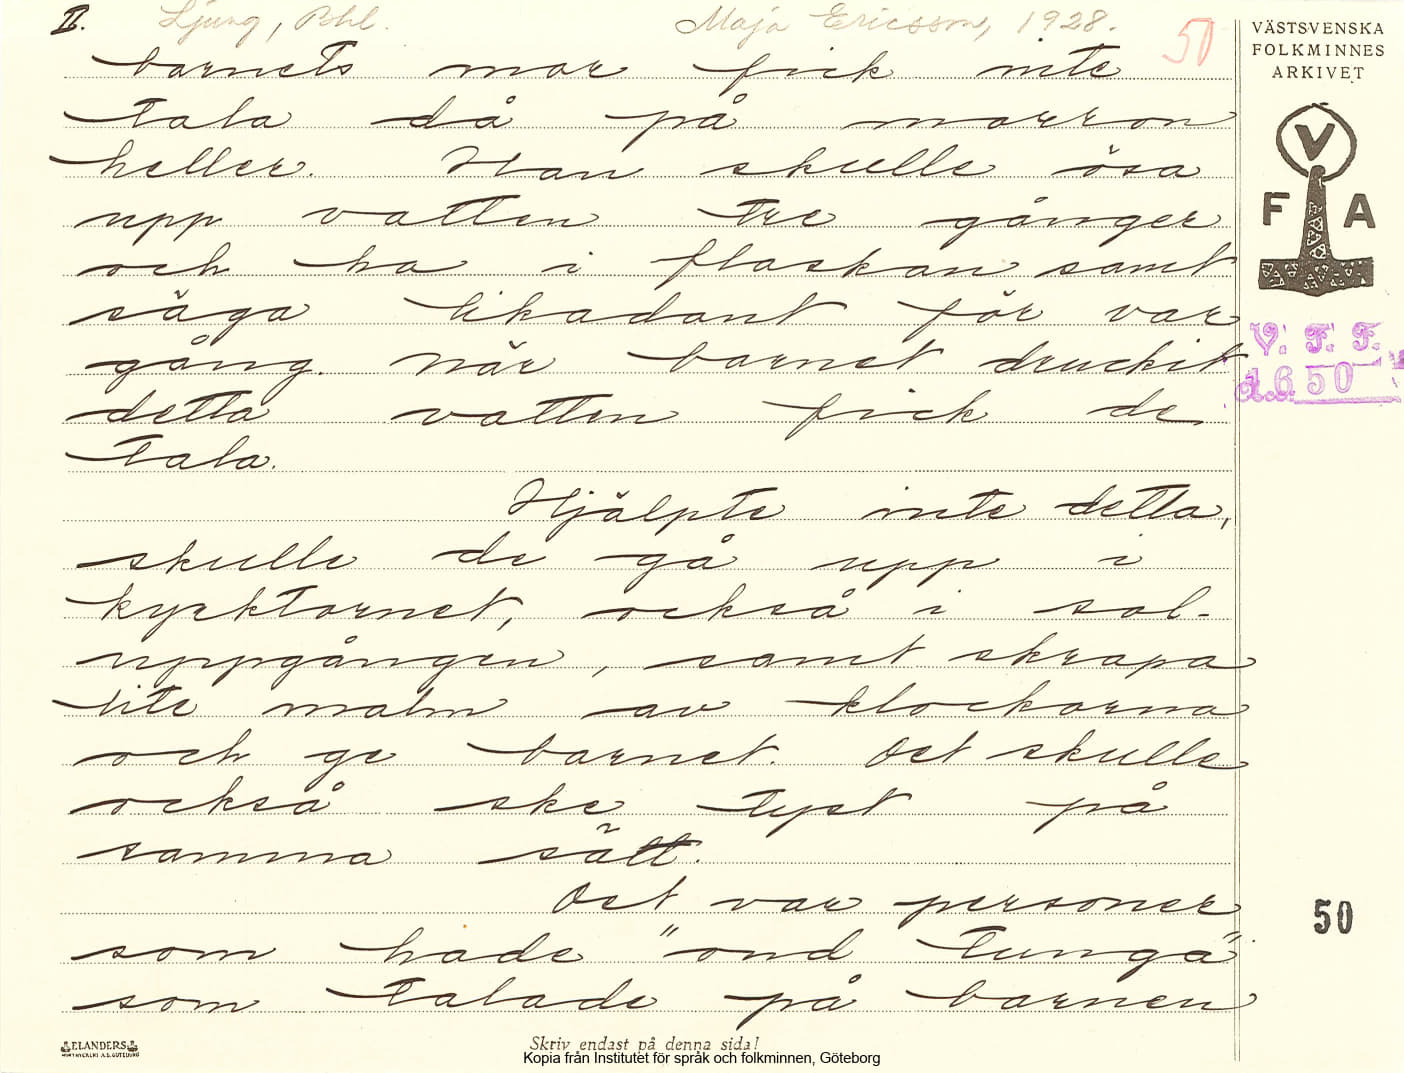 II. Ljung, Bhl. Maja Ericsson, 1928. 50
barnets mor fick inte
tala då på morron
heller. Han skulle ösa
upp vatten tre gånger
och ha i flaskan samt
säga likadant för var
gång. När barnet druckit
detta vatten fick de
tala.
Hjälpte inte detta,
skulle de gå upp i
kyrktornet, också i sol-
uppgången, samt skrapa
lite malm av klockorna
och ge barnet. Det skulle
också ske tyst på
samma sätt.
Det var personer
som hade "ond tunga"
som talade på barnen
VÄSTSVENSKA
FOLKMINNES
ARKIVET
V
F A
V. F. F.
1650
50
ELANDERS
Skriv endast på denna sida!
Kopia från Institutet för språk och folkminnen, Göteborg